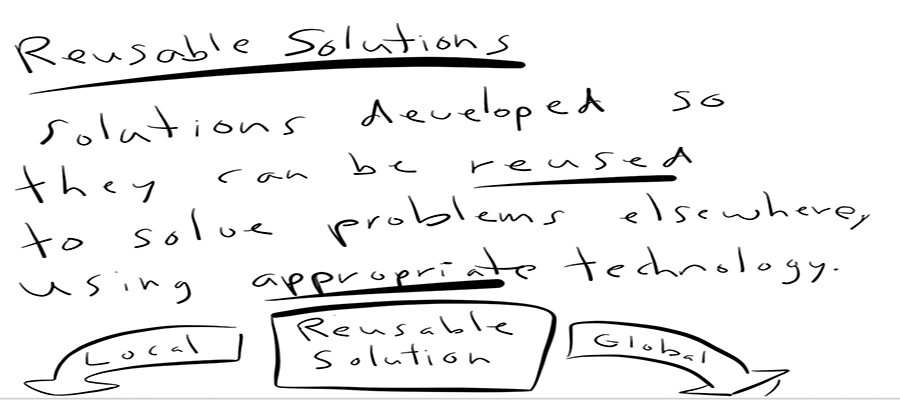 Reusable Solutions
solutions developed so
they can be reused
to solve problems elsewhere,
using appropriate technology.
Local
Reusable
Solution
Global